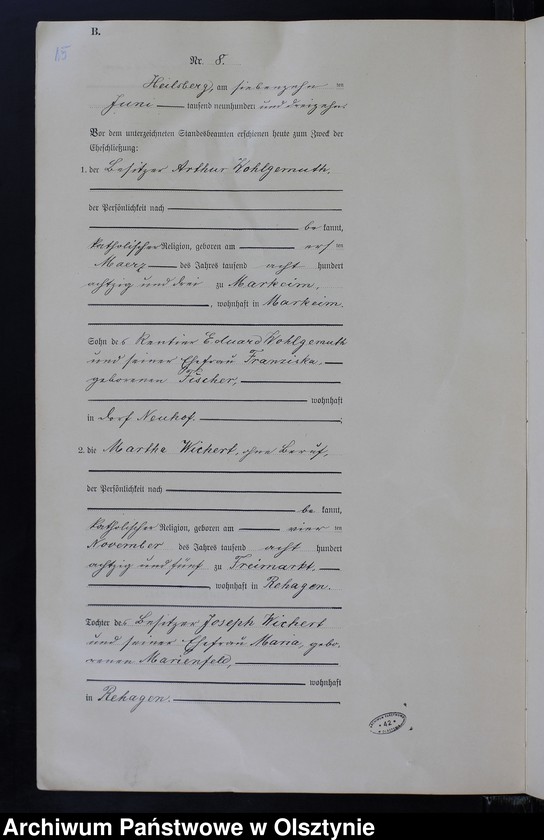 B.
15
Nr. 8.
Heilsberg, am siebenzehn ten
Juni tausend neunhundert und dreizehn
Vor dem unterzeichneten Standesbeamten erschienen heute zum Zweck der
Eheschließung:
1. der Besitzer Arthur Wohlgemuth,
der Persönlichkeit nach
be kannt,
katholischer Religion, geboren am ers ten
Maerz des Jahres tausend acht hundert
achtzig und drei zu Markeim,
, wohnhaft in Markeim.
Sohn des Rentier Eduard Wohlgemuth
und seiner Ehefrau Franziska,
geborenen Fischer,
wohnhaft
in Dorf Neuhof. ;
2. die Martha Wichert, ohne Beruf,
der Persönlichkeit nach
be kannt,
katholischer Religion, geboren am vier ten
November des Jahres tausend acht hundert
achtzig und fünf zu Freimarkt.
, wohnhaft in Rehagen.
Tochter des Besitzer Joseph Wichert
und seiner Ehefrau Maria, gebo-
renen Marienfeld,
wohnhaft
in Rehagen.
42
Archiwum Państwowe w Olsztynie